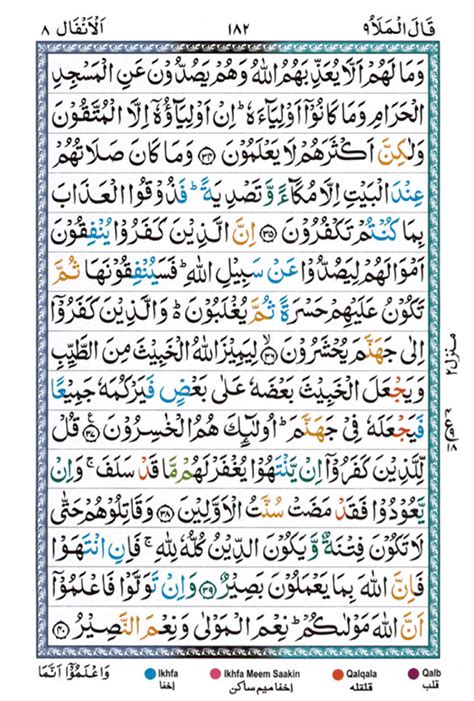 قَالَ الْمَلَاُ ٩ ١٨٢ اَلْاَنْفَال ٨
وَمَا لَهُمْ اَلَّا يُعَذِّبَهُمُ اللّٰهُ وَهُمْ يَصُدُّوْنَ عَنِ الْمَسْجِدِ
الْحَرَامِ وَمَا كَانُوْٓا اَوْلِيَآءَهٗ ؕ اِنْ اَوْلِيَآؤُهٗٓ اِلَّا الْمُتَّقُوْنَ
وَلٰكِنَّ اَكْثَرَهُمْ لَا يَعْلَمُوْنَ ﴿۳۴﴾ وَمَا كَانَ صَلَاتُهُمْ
عِنْدَ الْبَيْتِ اِلَّا مُكَآءً وَّتَصْدِيَةً ؕ فَذُوْقُوا الْعَذَابَ
بِمَا كُنْتُمْ تَكْفُرُوْنَ ﴿۳۵﴾ اِنَّ الَّذِيْنَ كَفَرُوْا يُنْفِقُوْنَ
اَمْوَالَهُمْ لِيَصُدُّوْا عَنْ سَبِيْلِ اللّٰهِ ؕ فَسَيُنْفِقُوْنَهَا ثُمَّ
تَكُوْنُ عَلَيْهِمْ حَسْرَةً ثُمَّ يُغْلَبُوْنَ ؕ وَالَّذِيْنَ كَفَرُوْٓا
اِلٰى جَهَنَّمَ يُحْشَرُوْنَ ﴿۳۶﴾ لِيَمِيْزَ اللّٰهُ الْخَبِيْثَ مِنَ الطَّيِّبِ
وَيَجْعَلَ الْخَبِيْثَ بَعْضَهٗ عَلٰى بَعْضٍ فَيَرْكُمَهٗ جَمِيْعًا
فَيَجْعَلَهٗ فِيْ جَهَنَّمَ ؕ اُولٰٓئِكَ هُمُ الْخٰسِرُوْنَ ﴿۳۷﴾ قُلْ
لِّلَّذِيْنَ كَفَرُوْٓا اِنْ يَّنْتَهُوْا يُغْفَرْ لَهُمْ مَّا قَدْ سَلَفَ ۚ وَاِنْ
يَّعُوْدُوْا فَقَدْ مَضَتْ سُنَّتُ الْاَوَّلِيْنَ ﴿۳۸﴾ وَقَاتِلُوْهُمْ حَتّٰى
لَا تَكُوْنَ فِتْنَةٌ وَّيَكُوْنَ الدِّيْنُ كُلُّهٗ لِلّٰهِ ۚ فَاِنِ انْتَهَوْا
فَاِنَّ اللّٰهَ بِمَا يَعْمَلُوْنَ بَصِيْرٌ ﴿۳۹﴾ وَاِنْ تَوَلَّوْا فَاعْلَمُوْٓا
اَنَّ اللّٰهَ مَوْلٰىكُمْ ؕ نِعْمَ الْمَوْلٰى وَنِعْمَ النَّصِيْرُ ﴿۴۰﴾
منزل ٢
وَاعْلَمُوْٓا اَنَّمَا
Ikhfa اخفا
Ikhfa Meem Saakin اخفا میم ساکن
Qalqala قلقله
Qalb قلب